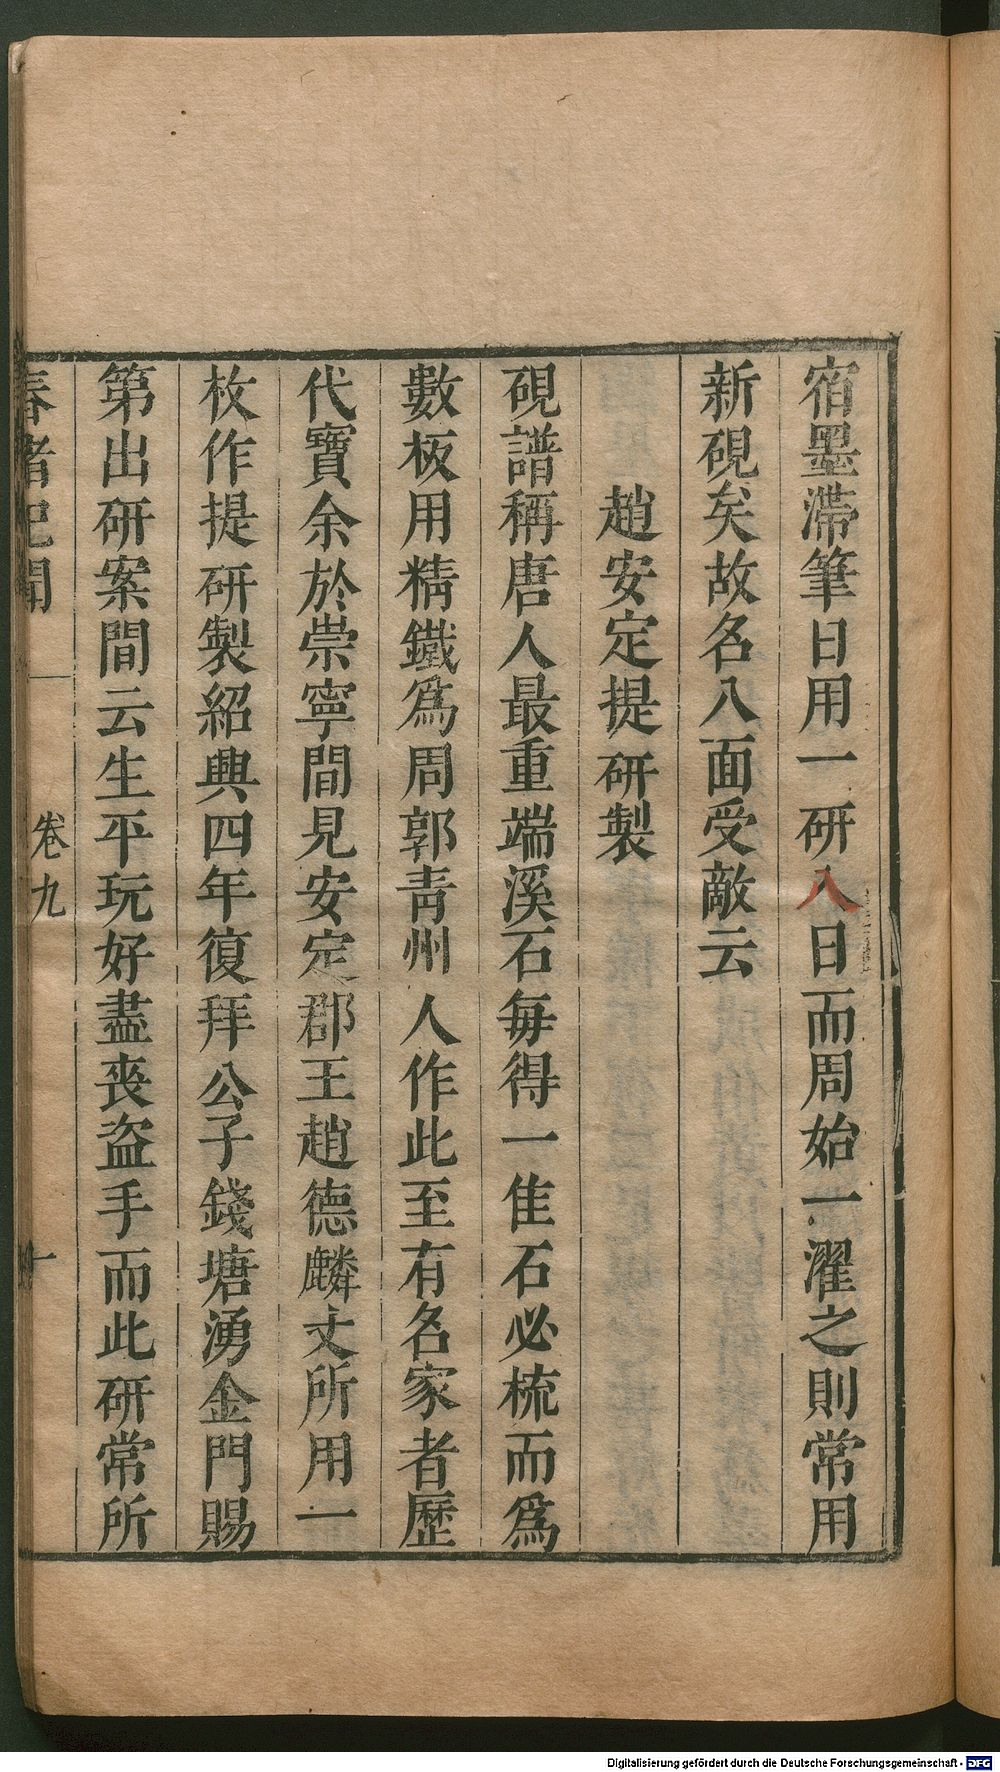 宿墨滯筆日用一研入日而周始一濯之則常用
新硯矣故名八面受敵云
趙安定提研製
硯譜稱唐人最重端溪石每得一佳石必梳而為
數板用精鐵為周郭青州人作此至有名家者歷
代寶余於崇寧間見安定郡王趙德麟丈所用一
枚作提研製紹興四年復拜公子錢塘湧金門賜
第出研案間云生平玩好盡喪盜手而此研常所
春渚紀聞
卷九
Digitalisierung gefördert durch die Deutsche Forschungsgemeinschaft - DFG